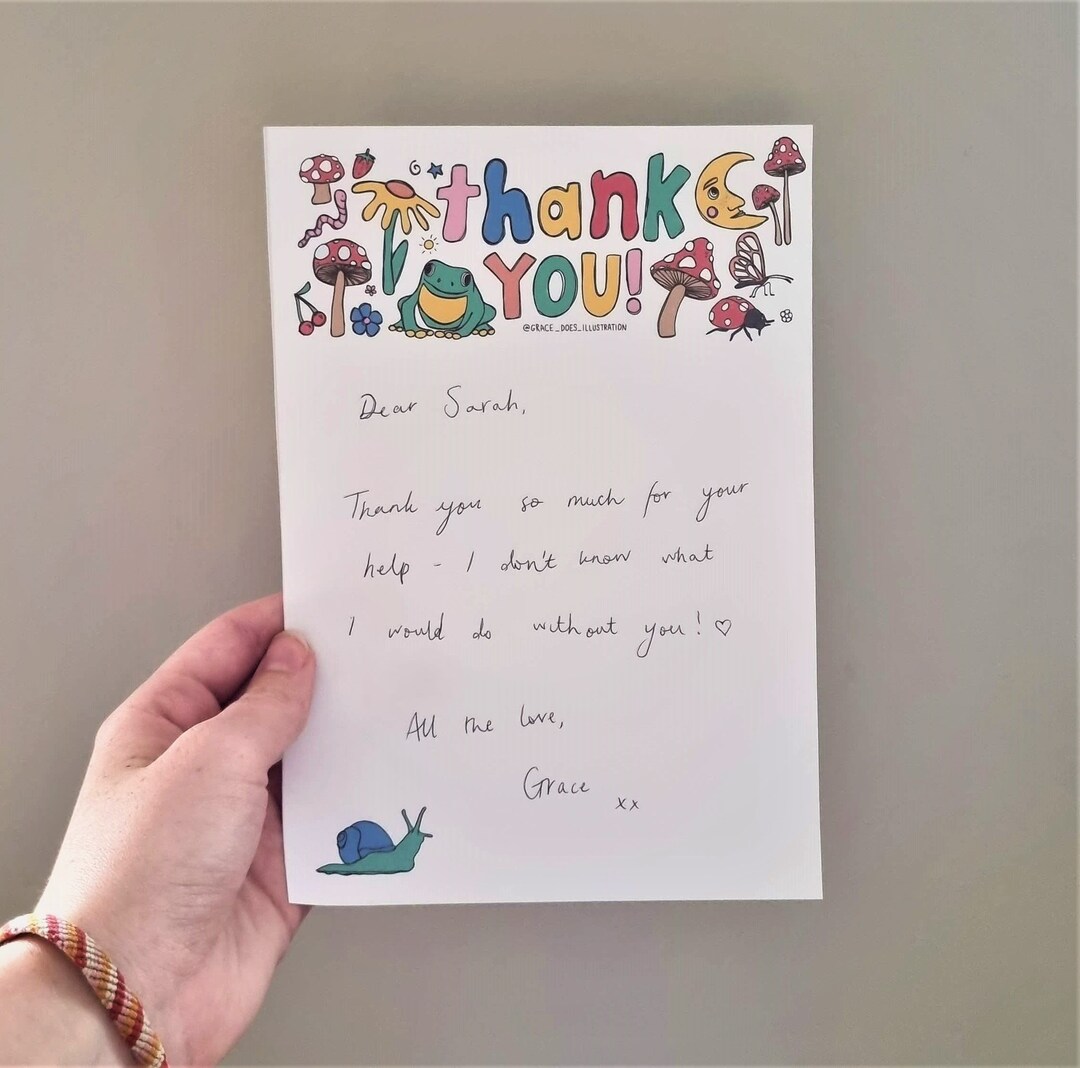 thank
YOU!
@GRACE_DOES_ILLUSTRATION
Dear Sarah,
Thank you so much for your
help - I don't know what
I would do without you! ♡
All the love,
Grace xx